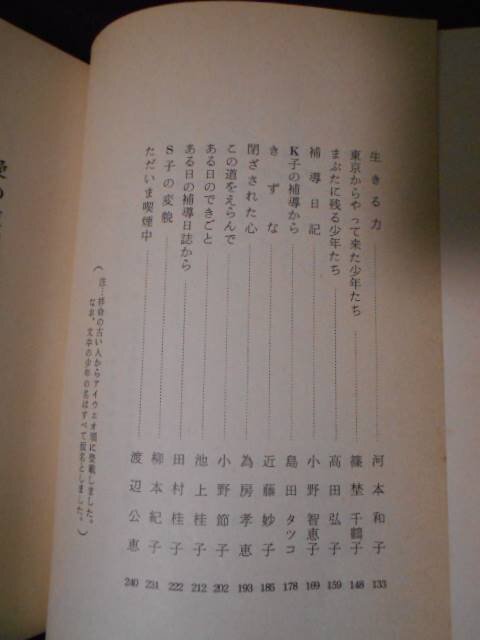 生きる力……河本和子 133
東京からやって来た少年たち……篠埜千鶴子 148
まぶたに残る少年たち……高田弘子 159
補導日記……小野智恵子 169
K子の補導から……島田タツコ 178
きずな……近藤妙子 185
閉ざされた心……為房孝恵 193
この道をえらんで……小野節子 202
ある日のできごと……池上桂子 212
ある日の補導日誌から……田村桂子 222
S子の変貌……柳本紀子 231
ただいま喫煙中……渡辺公恵 240
(注…拝命の古い人からアイウエオ順に登載しました。
なお、文中の少年の名はすべて仮名としました。)